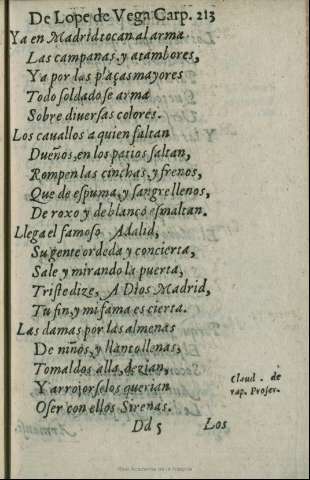 De Lope de Vega Carp. 213
Ya en Madrid tocan al arma
Las campanas, y atambores,
Ya por las plaças mayores
Todo soldado se arma
Sobre diversas colores.
Los cavallos a quien faltan
Dueños, en los patios saltan,
Rompen las cinchas, y frenos,
Que de espuma, y sangre llenos,
De roxo y de blanco esmaltan.
Llega el famoso Adalid,
Su gente ordeda y concierta,
Sale y mirando la puerta,
Triste dize, A Dios Madrid,
Tu fin, y mi fama es cierta.
Las damas por las almenas
De niños, y llanto llenas,
Tomaldos alla, dezian,
Y arrojorselos querian
Oser con ellos Sirenas.
Claud. de
rap. Proser.
Dd 5 Los
Real Academia de la Historia